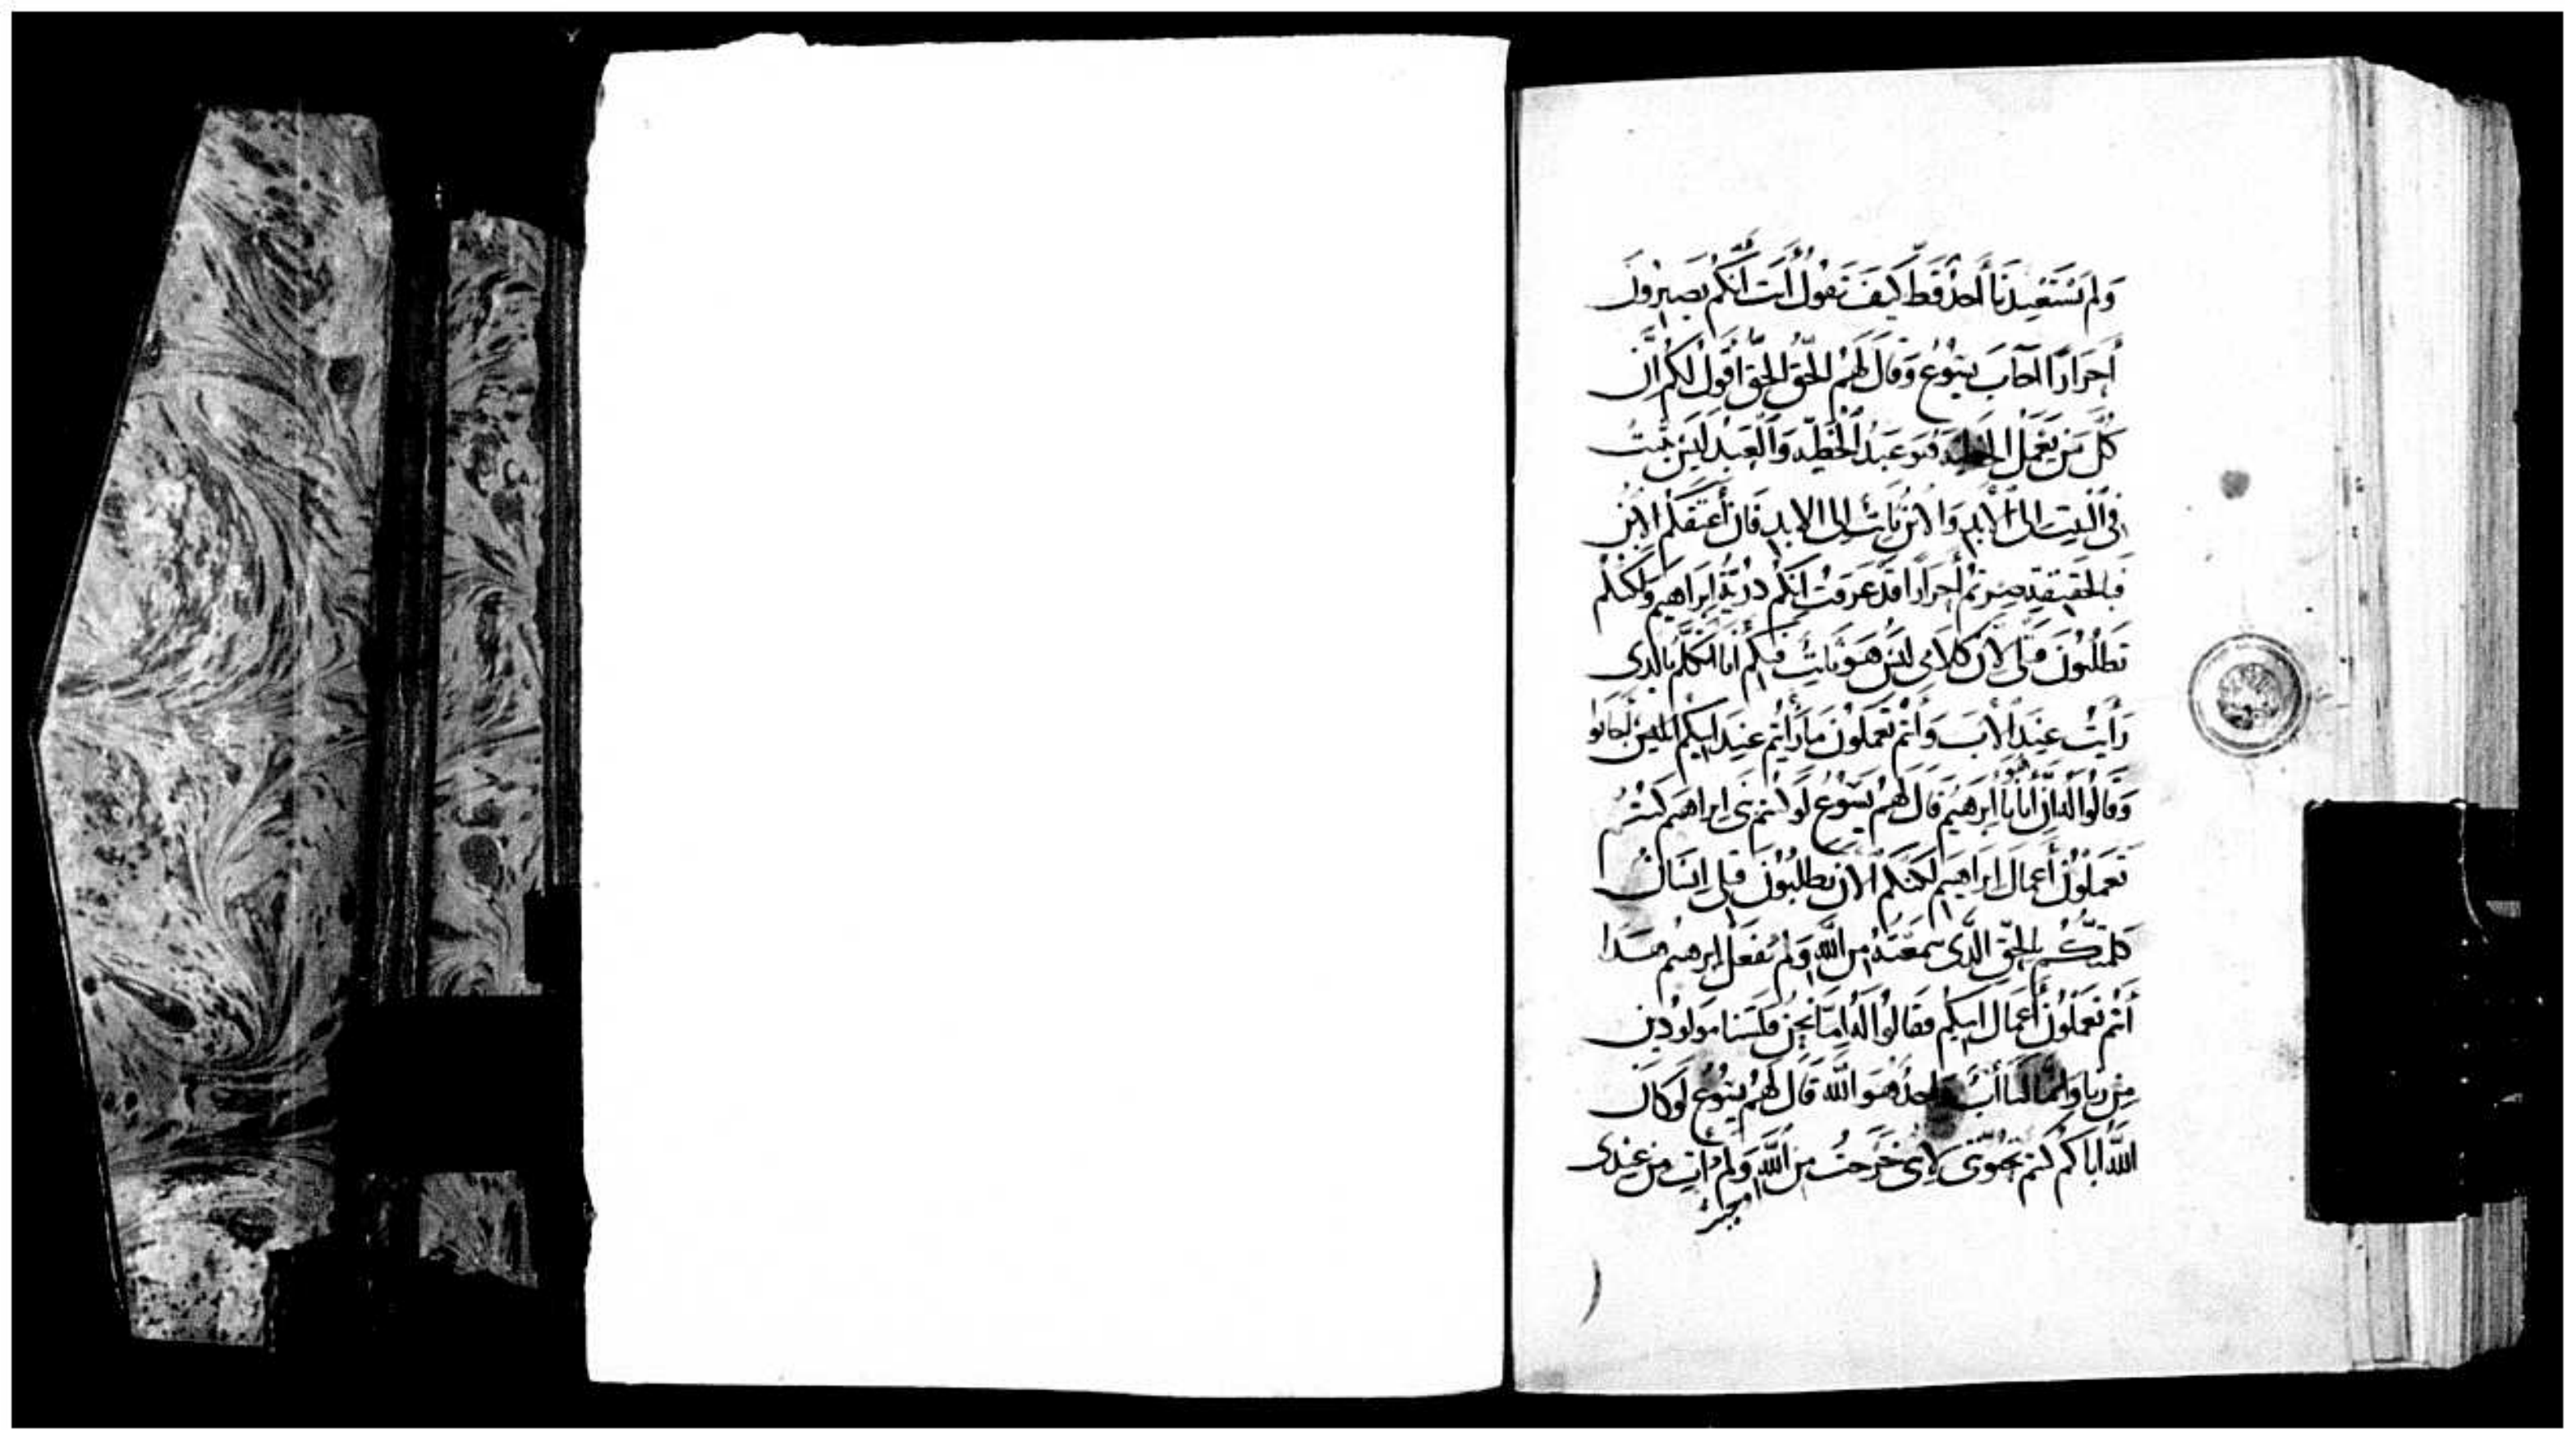 وَلم يَسْتَعْبِدنَا أَحَدٌ قَطّ كَيفَ تَقولُ أَنتَ أَنَّكُم تصيرونَ
أَحرَارًا أجَابَ يسُوُع وَقالَ لَهُمْ الحَقّ الحَقّ أقولُ لكم إنّ
كُلّ مَن يَعْمَل الخطيه فهو عَبدُ الخَطِيّه وَالعَبدُ ليسَ يثبتُ
في البيت الى الأبد وَالابن ثابت الى الابد فان أعتقكم الابن
فبالحقيقه صِرتم أحرَارًا قد عَرفتُ انكم ذريّة ابراهيم ولكنكم
تطلبُونَ قتلى لأن كلامى ليسَ هوَ ثابتٌ فيكم أنا اتكلم بالذى
رَأيتُ عندَ الأب وَأنتُم تَعمَلونَ مَا رَأيتُم عندَ ابيكم أجَابوا
وَقالوُا لهُ إنّ أبَانا هُو ابرهيم قالَ لهُم يَسُوعُ لَو كنتم بَنى ابراهيم كنتُم
تَعملوُنَ أعمالَ ابراهيم لكنكم الان تطلبوُن قتل انسَان
كلمّتكُم بالحَقّ الّذى سَمعَتهُ من الله وَلم يَفعَل ابرهيم هَذا
أنتُم تعملوُن أعمَال ابيكم فقالوا لهُ امّا نحنُ فلسنا مَولودين
مِن زنا وَانما لنا أبٌ واحدٌ هوَ الله قالَ لهُم يسُوُع لَو كانَ
اللّهُ أباكُم كنتم تحبّونى لأنى خَرَجتُ من الله وَلم آتِ من عندى